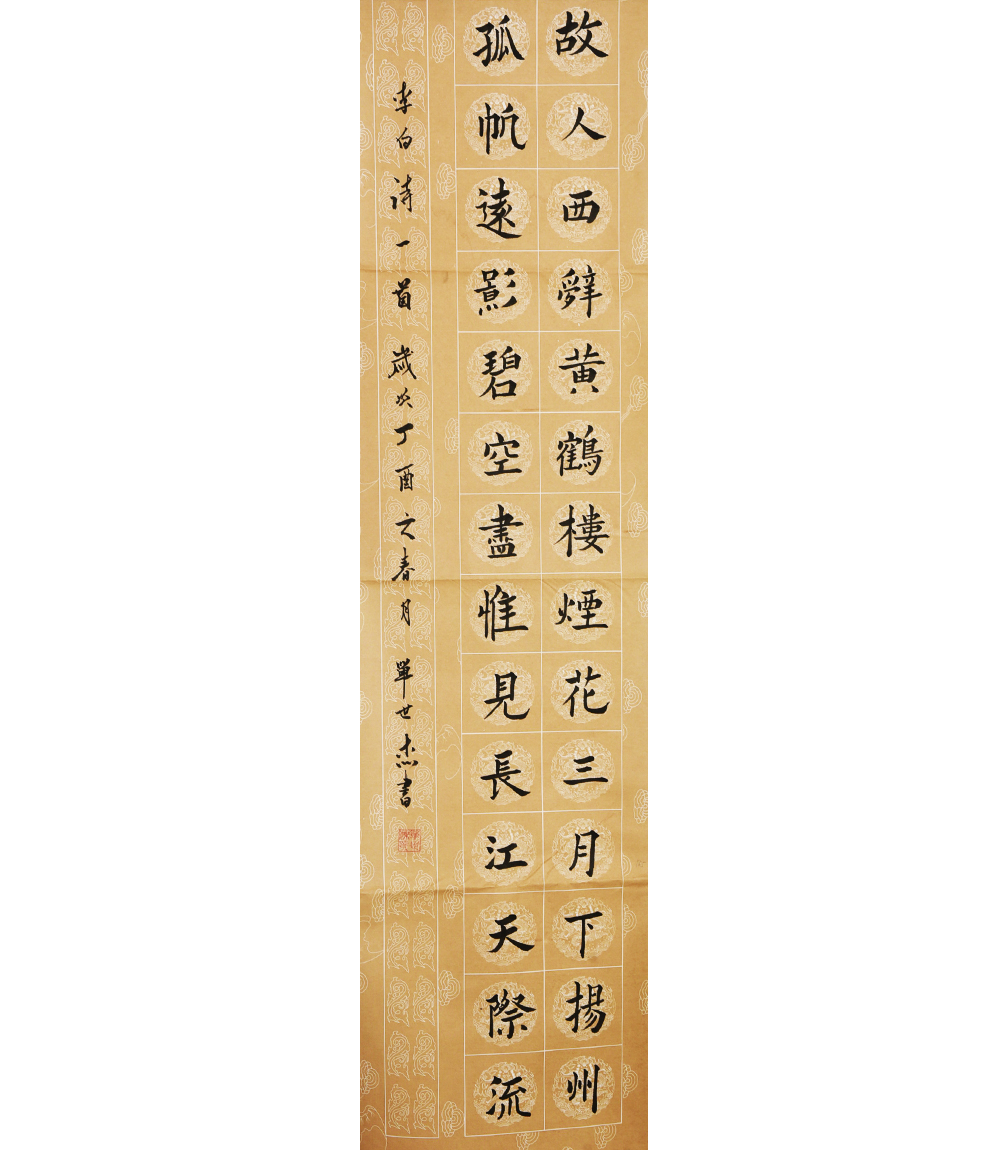 故人西辤黄鶴樓煙花三月下揚州
孤帆遠影碧空盡惟見長江天際流
李白詩一首 歲次丁酉之春月 單世杰書